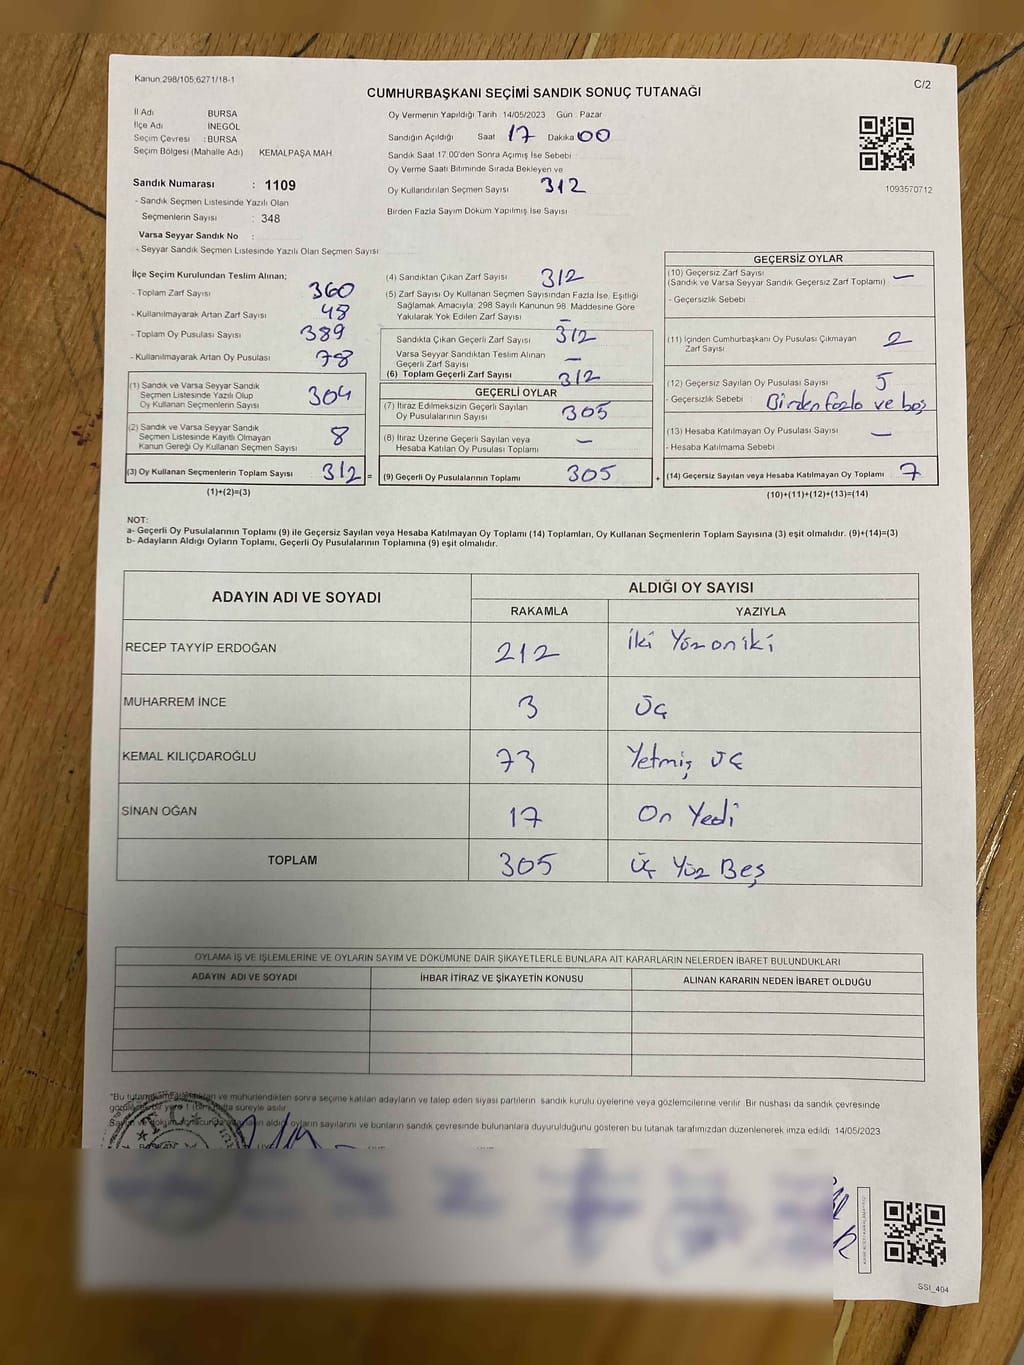 Kanun:298/105,6271/18-1
C/2
CUMHURBAŞKANI SEÇİMİ SANDIK SONUÇ TUTANAĞI
İl Adı BURSA
İlçe Adı İNEGÖL
Seçim Çevresi : BURSA
Seçim Bölgesi (Mahalle Adı) KEMALPAŞA MAH
Sandık Numarası : 1109
- Sandık Seçmen Listesinde Yazılı Olan
Seçmenlerin Sayısı : 348
Varsa Seyyar Sandık No :
- Seyyar Sandık Seçmen Listesinde Yazılı Olan Seçmen Sayısı
Oy Vermenin Yapıldığı Tarih 14/05/2023 Gün : Pazar
Sandığın Açıldığı Saat 17 Dakika 00
Sandık Saat 17:00'den Sonra Açımış İse Sebebi
Oy Verme Saati Bitiminde Sırada Bekleyen ve
Oy Kullandırılan Seçmen Sayısı 312
Birden Fazla Sayım Döküm Yapılmış İse Sayısı
1093570712
İlçe Seçim Kurulundan Teslim Alınan;
- Toplam Zarf Sayısı 360
- Kullanılmayarak Artan Zarf Sayısı 48
- Toplam Oy Pusulası Sayısı 389
- Kullanılmayarak Artan Oy Pusulası 78
(1) Sandık ve Varsa Seyyar Sandık
Seçmen Listesinde Yazılı Olup
Oy Kullanan Seçmenlerin Sayısı 304
(2) Sandık ve Varsa Seyyar Sandık
Seçmen Listesinde Kayıtlı Olmayan
Kanun Gereği Oy Kullanan Seçmen Sayısı 8
(3) Oy Kullanan Seçmenlerin Toplam Sayısı 312 =
(1)+(2)=(3)
(4) Sandıktan Çıkan Zarf Sayısı 312
(5) Zarf Sayısı Oy Kullanan Seçmen Sayısından Fazla İse, Eşitliği
Sağlamak Amacıyla, 298 Sayılı Kanunun 98. Maddesine Göre
Yakılarak Yok Edilen Zarf Sayısı –
Sandıkta Çıkan Geçerli Zarf Sayısı 312
Varsa Seyyar Sandıktan Teslim Alınan
Geçerli Zarf Sayısı –
(6) Toplam Geçerli Zarf Sayısı 312
GEÇERLİ OYLAR
(7) İtiraz Edilmeksizin Geçerli Sayılan
Oy Pusulalarının Sayısı 305
(8) İtiraz Üzerine Geçerli Sayılan veya
Hesaba Katılan Oy Pusulası Toplamı –
(9) Geçerli Oy Pusulalarının Toplamı 305 +
GEÇERSİZ OYLAR
(10) Geçersiz Zarf Sayısı –
(Sandık ve Varsa Seyyar Sandık Geçersiz Zarf Toplamı)
- Geçersizlik Sebebi
(11) İçinden Cumhurbaşkanı Oy Pusulası Çıkmayan
Zarf Sayısı 2
(12) Geçersiz Sayılan Oy Pusulası Sayısı 5
- Geçersizlik Sebebi Birden fazla ve boş
(13) Hesaba Katılmayan Oy Pusulası Sayısı –
- Hesaba Katılmama Sebebi
(14) Geçersiz Sayılan veya Hesaba Katılmayan Oy Toplamı 7
(10)+(11)+(12)+(13)=(14)
NOT:
a- Geçerli Oy Pusulalarının Toplamı (9) ile Geçersiz Sayılan veya Hesaba Katılmayan Oy Toplamı (14) Toplamları, Oy Kullanan Seçmenlerin Toplam Sayısına (3) eşit olmalıdır. (9)+(14)=(3)
b- Adayların Aldığı Oyların Toplamı, Geçerli Oy Pusulalarının Toplamına (9) eşit olmalıdır.
ADAYIN ADI VE SOYADI
ALDIĞI OY SAYISI
RAKAMLA YAZIYLA
RECEP TAYYİP ERDOĞAN 212 İki Yüz on iki
MUHARREM İNCE 3 Üç
KEMAL KILIÇDAROĞLU 73 Yetmiş üç
SİNAN OĞAN 17 On Yedi
TOPLAM 305 Üç Yüz Beş
OYLAMA İŞ VE İŞLEMLERİNE VE OYLARIN SAYIM VE DÖKÜMÜNE DAİR ŞİKAYETLERLE BUNLARA AİT KARARLARIN NELERDEN İBARET BULUNDUKLARI
ADAYIN ADI VE SOYADI İHBAR İTİRAZ VE ŞİKAYETİN KONUSU ALINAN KARARIN NEDEN İBARET OLDUĞU
*Bu ve mühürlendikten sonra seçime katılan adayların ve talep eden siyasi partilerin sandık kurulu üyelerine veya gözlemcilerine verilir. Bir nüshası da sandık çevresinde
süreyle asılır.
aldığı oyların sayılarını ve bunların sandık çevresinde bulunanlara duyurulduğunu gösteren bu tutanak tarafımızdan düzenlenerek imza edildi. 14/05/2023
SSI_404